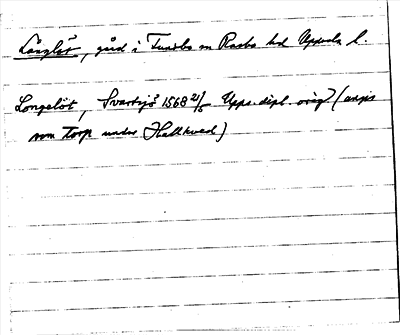 Långlöt, gård i Tuna sn Rasbo hd Uppsala l.
Longelöt, Svartsjö 1568 21/5 Upps. dipl. orig. (anges
som torp under Hallkved)